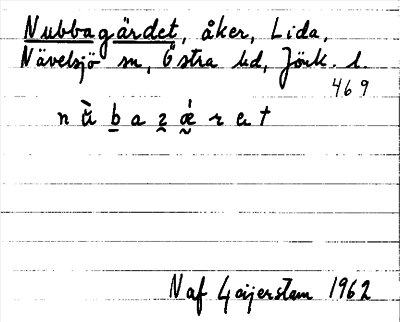 Nubbagärdet, åker, Lida,
Nävelsjö sn, Östra hd, Jönk. l.
469
Naf Geijerstam 1962